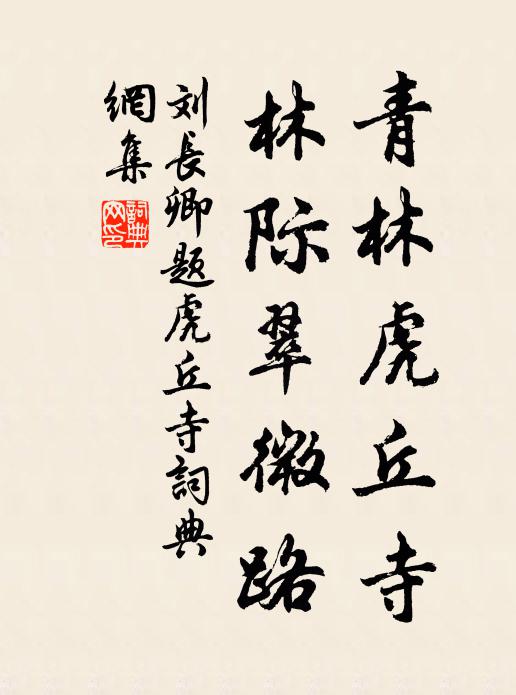 青林虎丘寺
林际翠微路
刘長卿题虎丘寺詞典
網集
詞典網印